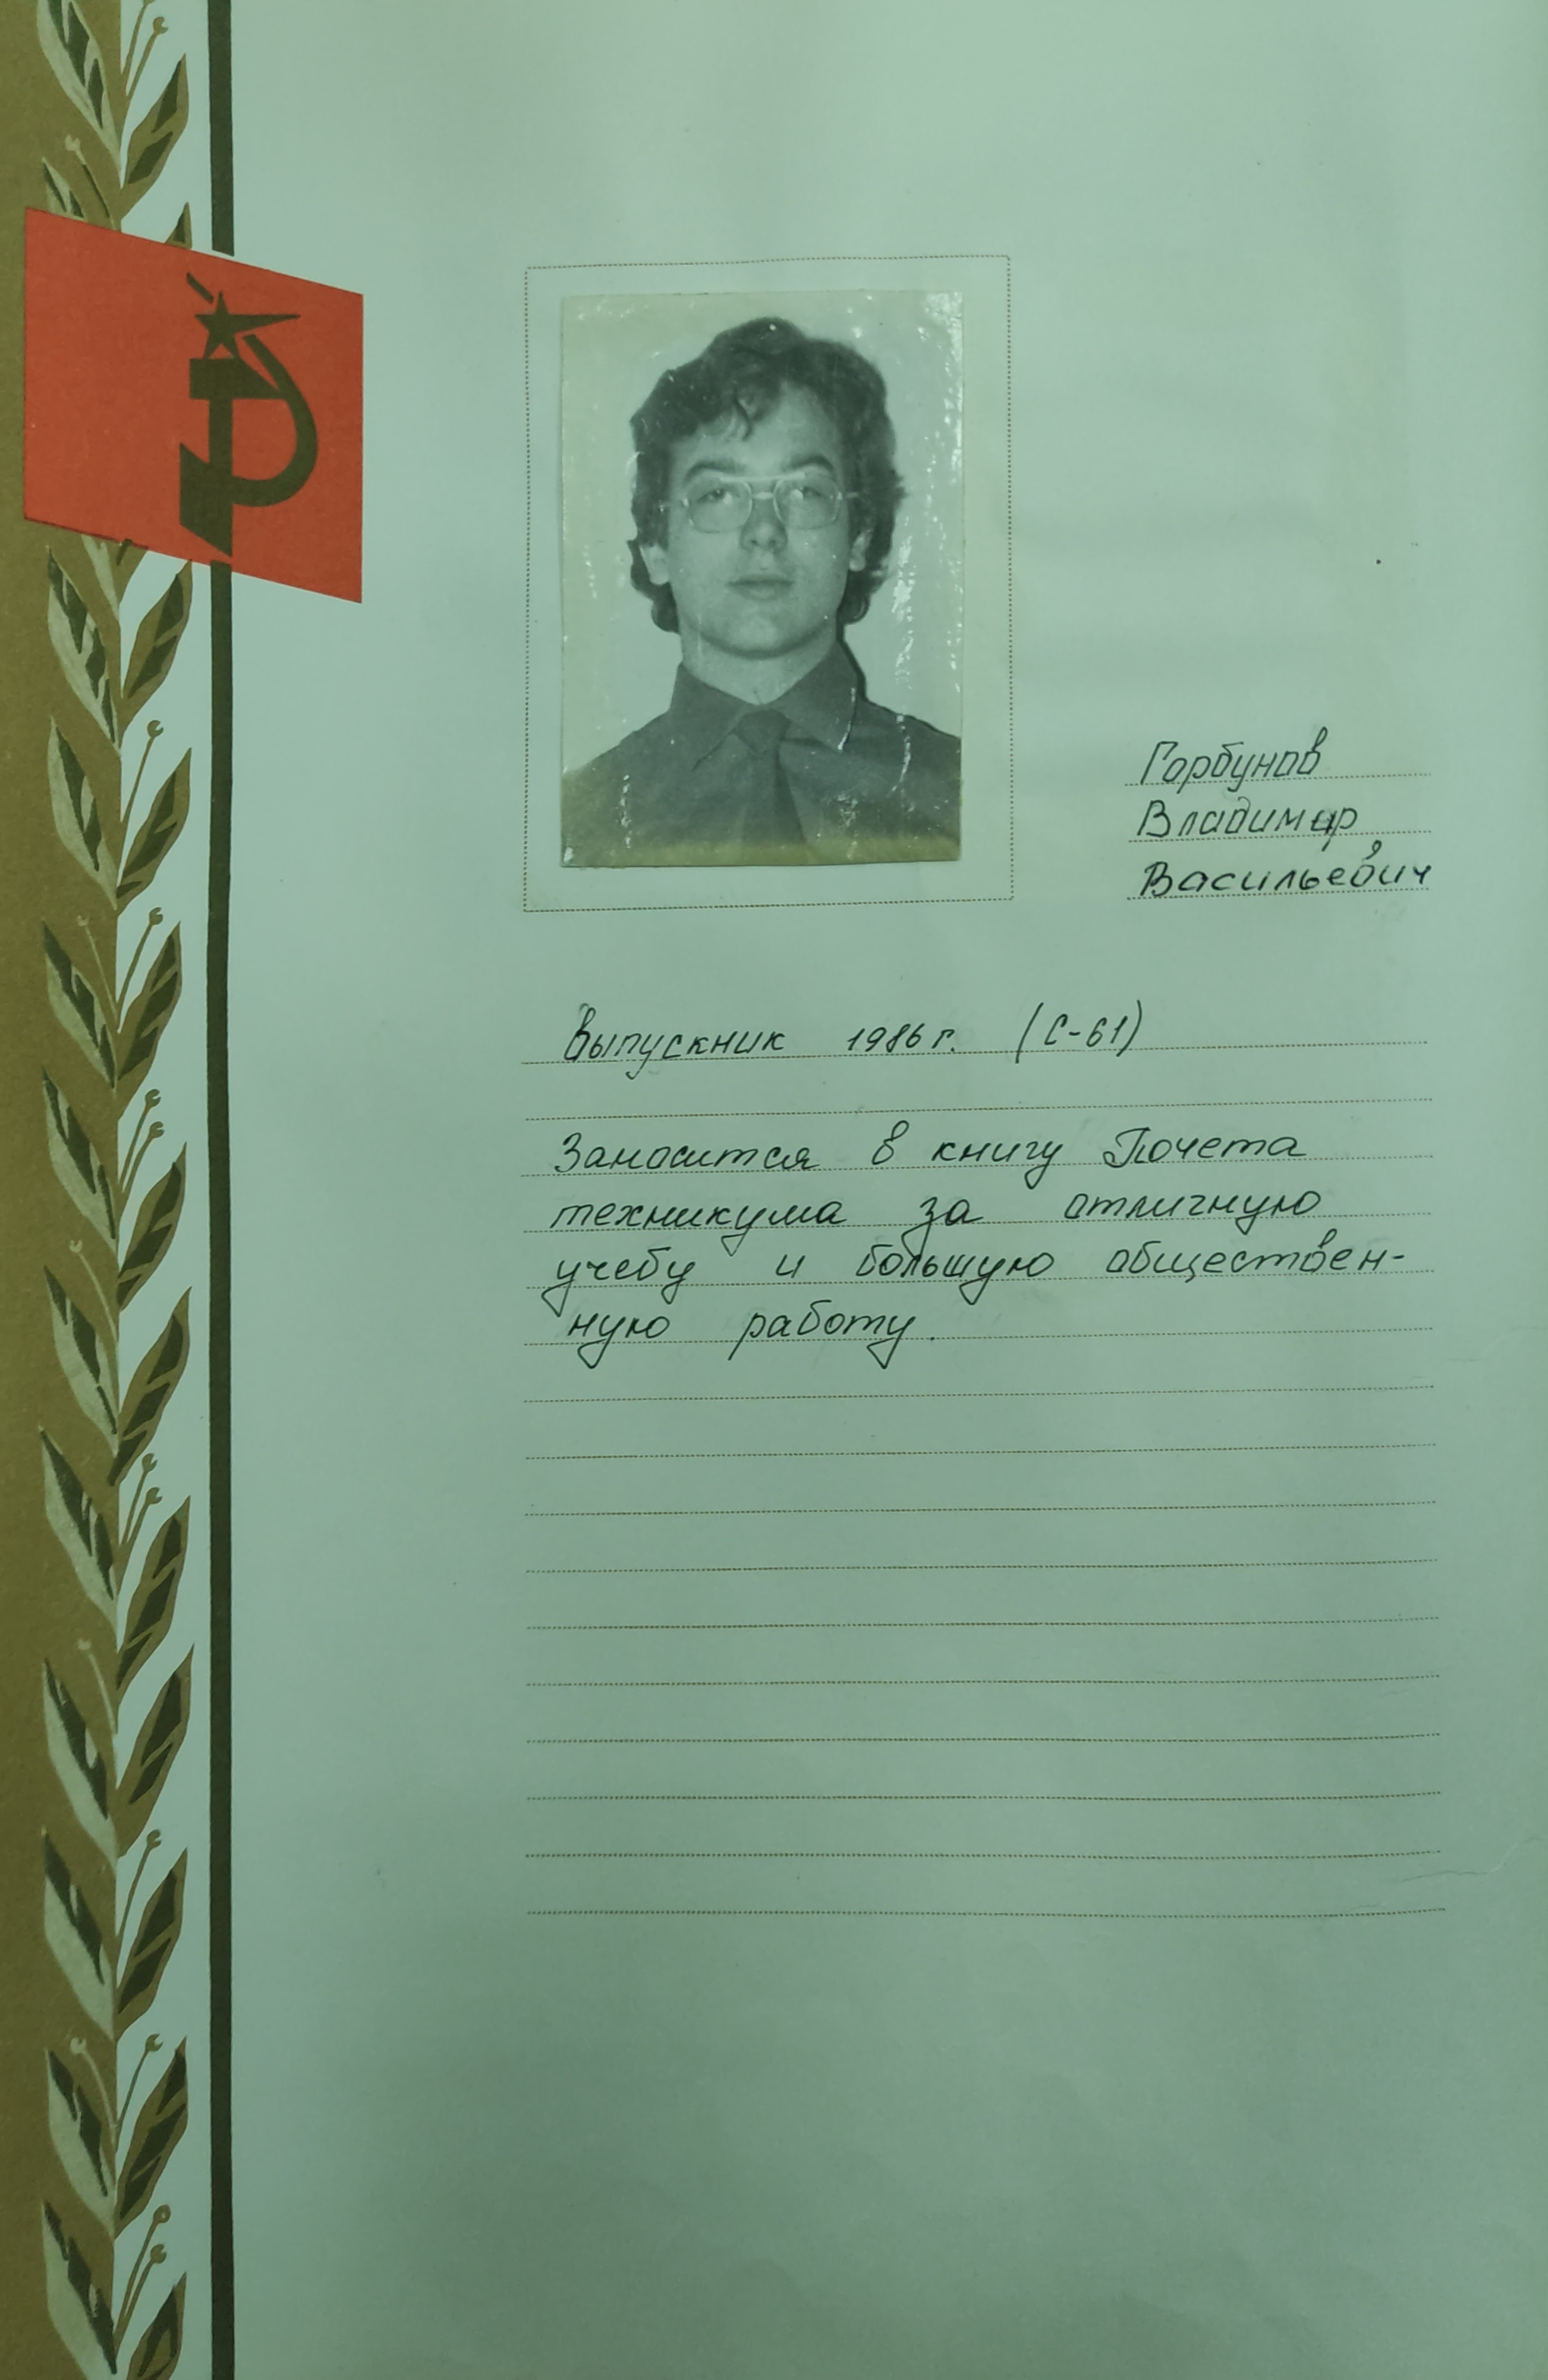 Горбунов
Владимир
Васильевич
Выпускник 1986 г. (С-61)
Заносится в книгу Почета
техникума за отличную
учебу и большую обществен-
ную работу.